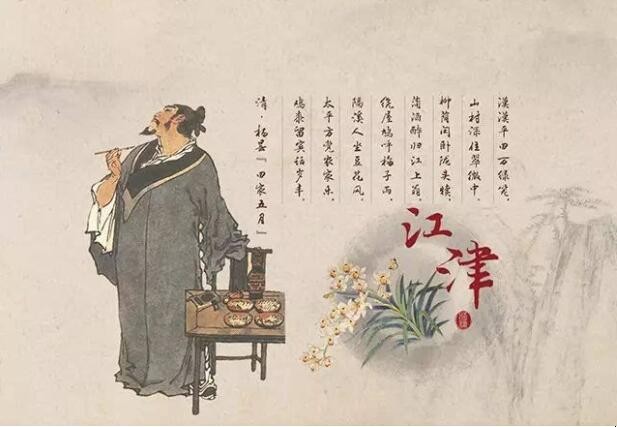 漠漠平田万绿茸，
山村深住翠微中。
柳荫闲卧陇头犊，
蒲酒醉归江上翁。
绕屋鸠呼梅子雨，
隔溪人坐豆花风。
太平方觉农家乐，
鸡黍留宾话岁丰。
清·杨昙《田家五月》
江津